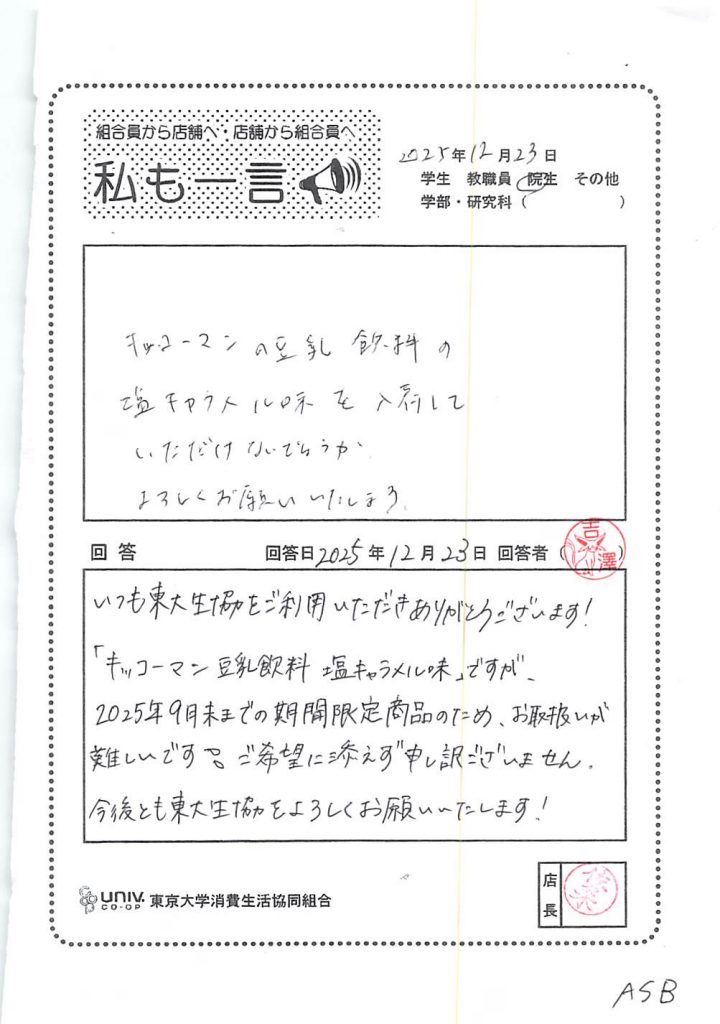 組合員から店舗へ・店舗から組合員へ
私も一言
2025年12月23日
学生 教職員 院生 その他
学部・研究科( )
キッコーマンの豆乳飲料の
塩キャラメル味を入荷して
いただけないでしょうか
よろしくお願いいたします。
回答 回答日2025年12月23日 回答者(吉澤)
いつも東大生協をご利用いただきありがとうございます!
「キッコーマン豆乳飲料 塩キャラメル味」ですが、
2025年9月末までの期間限定商品のため、お取扱いが
難しいです。ご希望に添えず申し訳ございません。
今後とも東大生協をよろしくお願いいたします!
UNIV. CO-OP 東京大学消費生活協同組合
店長
ASB